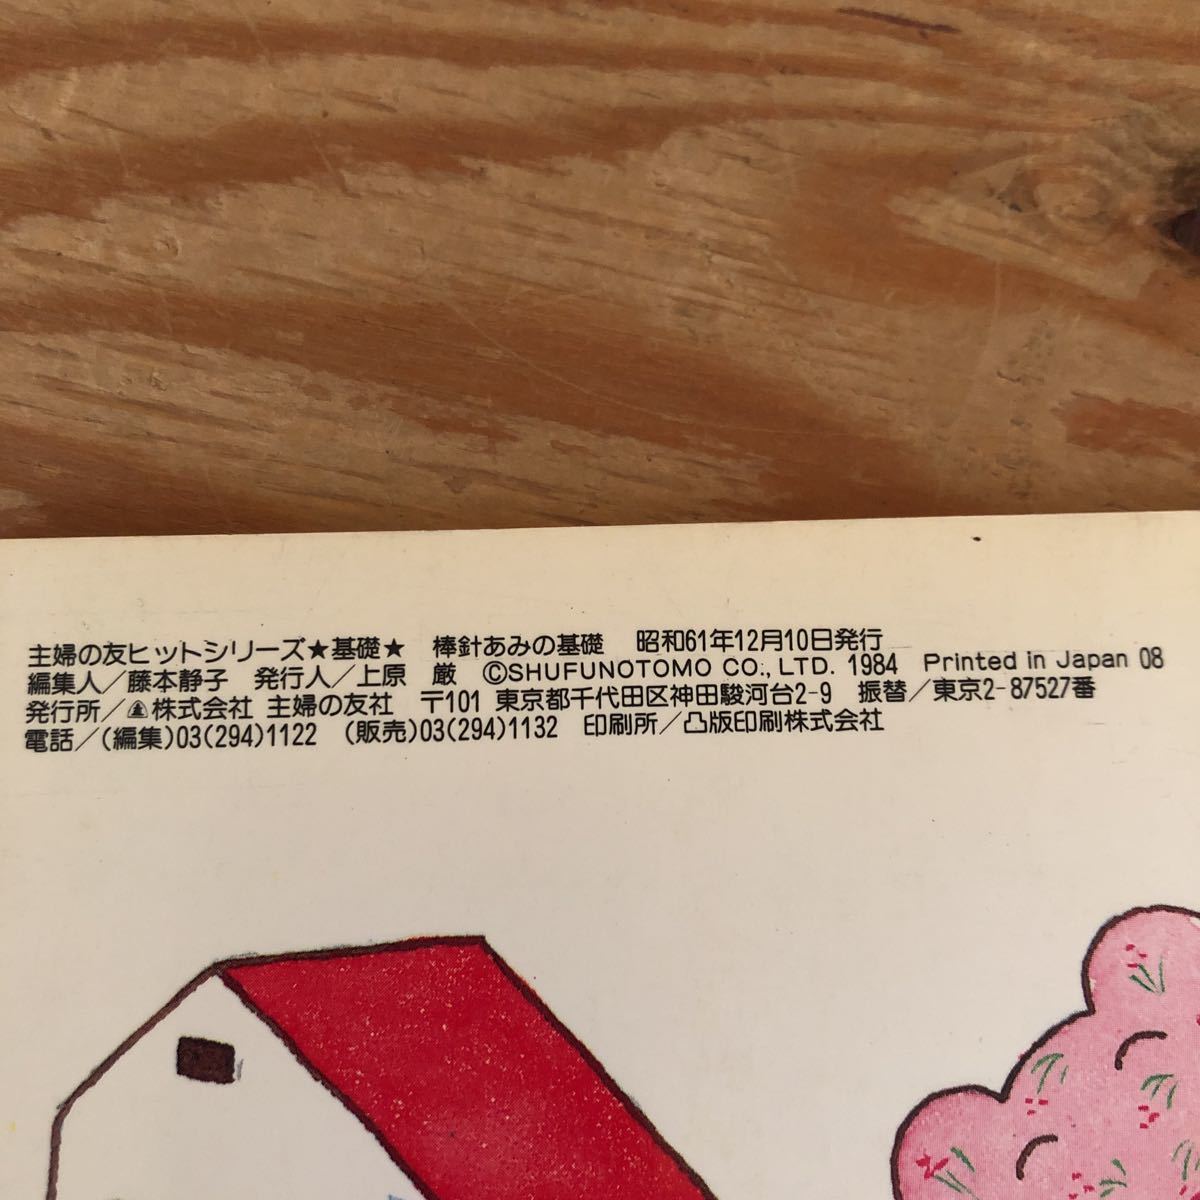 主婦の友ヒットシリーズ★基礎★　棒針あみの基礎　昭和61年12月10日発行
編集人／藤本静子　発行人／上原　厳　©SHUFUNOTOMO CO., LTD. 1984　Printed in Japan 08
発行所／株式会社 主婦の友社　〒101 東京都千代田区神田駿河台2-9　振替／東京2-87527番
電話／(編集)03(294)1122　(販売)03(294)1132　印刷所／凸版印刷株式会社